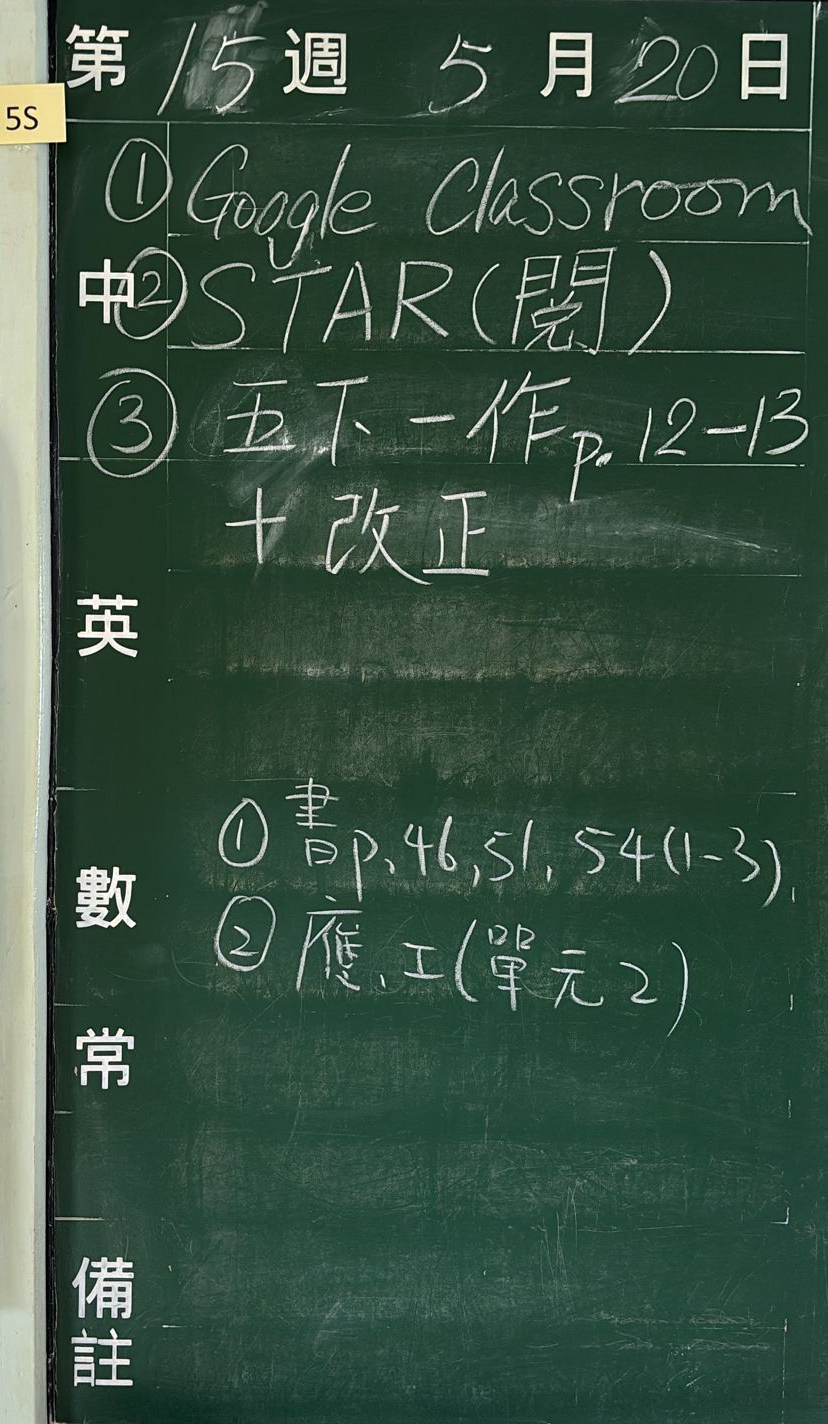 第15週 5月20日
5S
① Google Classroom
中 ② STAR(閱)
③ 五下一作p.12-13
+改正
英
① 書p.46,51,54(1-3),
數
② 應、工(單元2)
常
備註